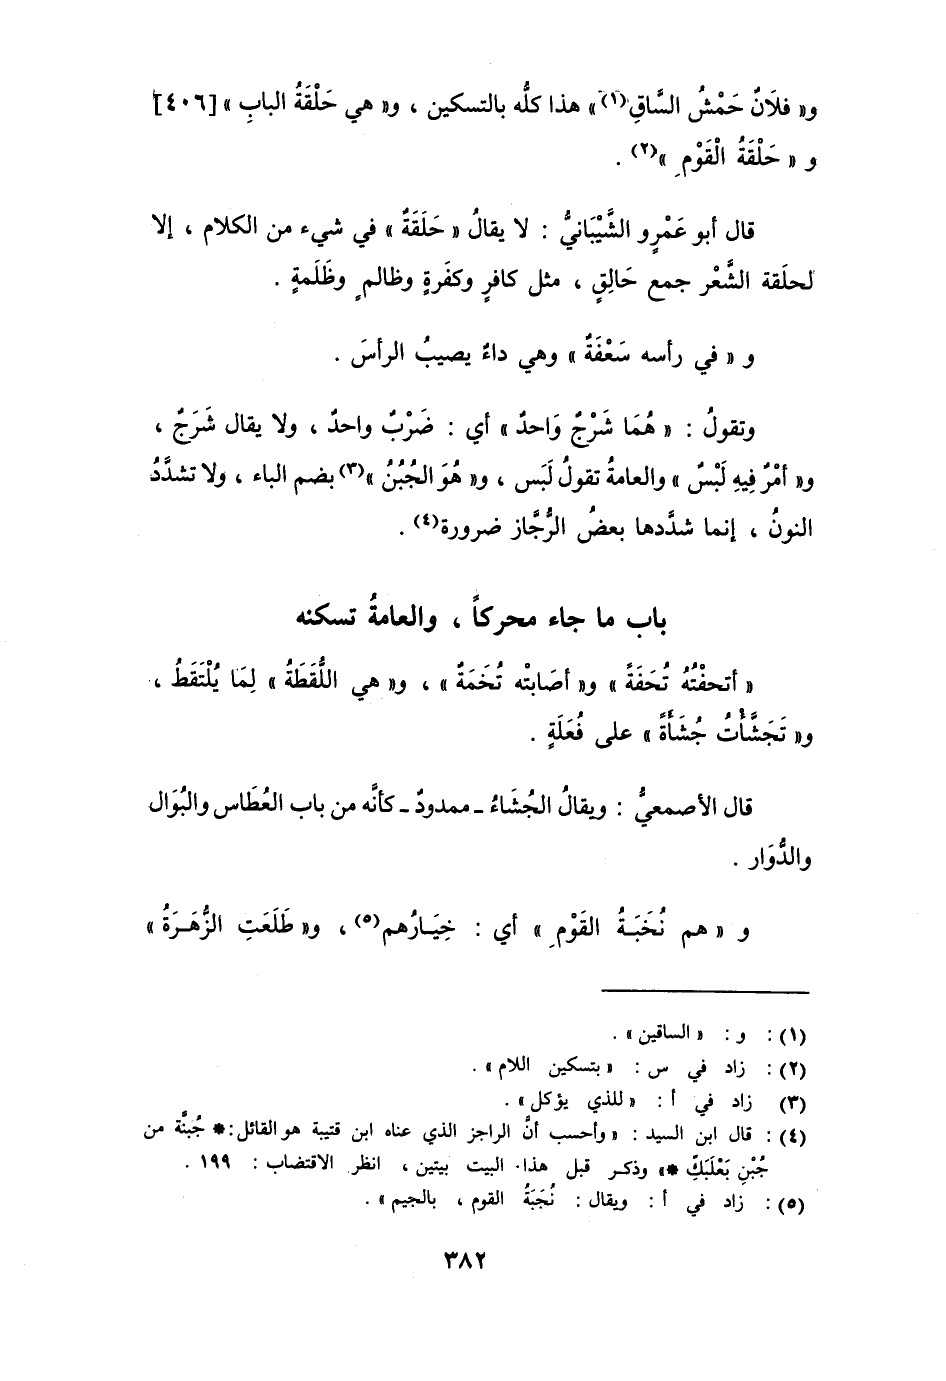 و« فلَانٌ حَمْشُ السَّاقِ(١)» هذا كلُّه بالتسكين ، و« هي حَلْقَةُ البابِ » [٤٠٦]
و « حَلْقَةُ الْقَوْمِ »(٢) .
قال أبو عَمْرٍو الشَّيْبَانيُّ : لا يقالُ « حَلَقَةٌ » في شيء من الكلام ، إلا
لحلَقة الشَّعْر جمع حَالِقٍ ، مثل كافرٍ وكفَرةٍ وظالمٍ وظَلَمةٍ .
و « في رأسه سَعْفَةٌ » وهي داءٌ يصيبُ الرأسَ .
وتقولُ : « هُمَا شَرْجٌ وَاحدٌ » أي : ضَرْبٌ واحدٌ ، ولا يقال شَرَجٌ ،
و« أمْرٌ فِيهِ لَبْسٌ » والعامةُ تقولُ لَبَس ، و« هُوَ الجُبُنُ »(٣) بضم الباء ، ولا تشدَّدُ
النونُ ، إنما شدَّدها بعضُ الرُّجَّاز ضرورة(٤) .
باب ما جاء محركاً ، والعامةُ تسكنه
« أتحفْتُهُ تُحَفَةً » و« أصَابتْه تُخَمَةٌ » ، و« هي اللُّقَطَةُ » لِمَا يُلْتَقَطُ ،
و« تَجَشَّأْتُ جُشَأَةً » على فُعَلَةٍ .
قال الأصمعيُّ : ويقالُ الجُشَاءُ ـ ممدودٌ ـ كأنَّه من باب العُطَاس والبُوَال
والدُّوَار .
و « هم نُخَبَةُ القَوْمِ » أي : خِيَارُهم(٥) ، و« طَلَعَتِ الزُّهَرَةُ »
(١) : و : « الساقين » .
(٢) : زاد في س : « بتسكين اللام » .
(٣) زاد في أ : « للذي يؤكل » .
(٤) : قال ابن السيد : « وأحسب أنَّ الراجز الذي عناه ابن قتيبة هو القائل : * جُبنَّة من
جُبْنِ بَعْلَبَكِّ *» وذكر قبل هذا البيت بيتين ، انظر الاقتضاب : ١٩٩ .
(٥) : زاد في أ : ويقال : نُجَبَةُ القوم ، بالجيم » .
٣٨٢